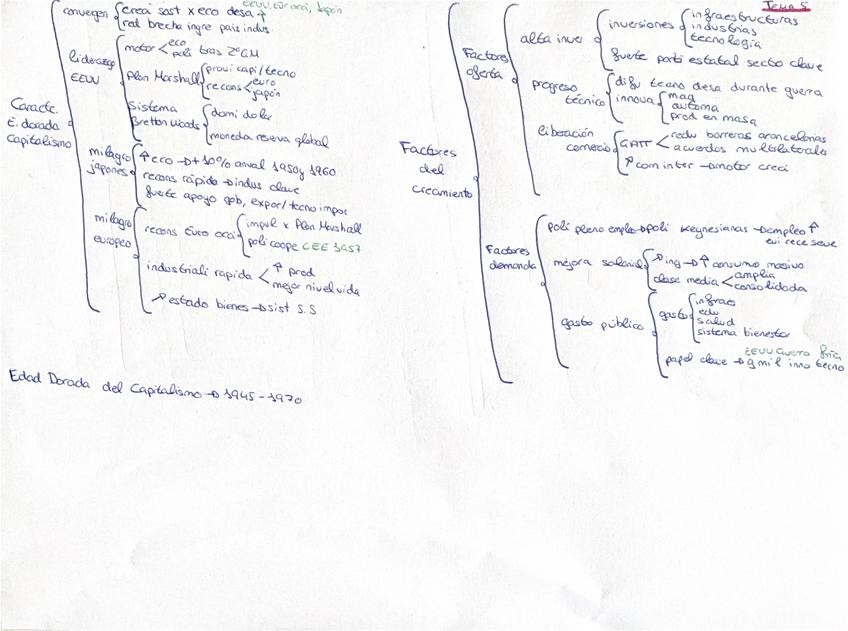 Tema 5
EEUU, Eur occi, Japón
convegen
crea sost x eco desa ↑
red brecha ingre pais indus
liderazgo EEUU
motor < eco poli tras 2ªGM
Plan Marshall
provi capi/tecno
recons < euro japón
Sistema Bretton Woods
domi dolar
moneda reserva global
Caracte. E. dorada Capitalismo
milagro japones
↑ eco → +10% anual 1950 y 1960
recons rápido → indus clave
fuerte apoyo gob, expor/tecno impor
milagro europeo
recons Euro occi
impul x Plan Marshall
poli coope CEE 1957
industriali rapida < ↑ prod
mejor nivel vida
↗ estado bienes → sist S.S
Edad Dorada del Capitalismo → 1945-1970
Factores del crecimiento
Factores oferta
alta inver
inversiones
infraestructuras
industrias
tecnología
fuerte parti estatal secto clave
progreso técnico
difu tecno desa durante guerra
innova
maq
automa
prod en masa
liberación comercio
GATT < redu barreras arancelarias
acuerdos multilaterales
↑ com inter → motor creci
Factores demanda
poli pleno empleo → poli keynesianas → empleo ↑
evi rece seve
mejora salarial
↗ ing → ↑ consumo masivo
clase media < amplia
consolidada
gasto público
gasto
infraes
edu
salud
sistema bienestar
EEUU Guerra fría
papel clave → g mil inno tecno